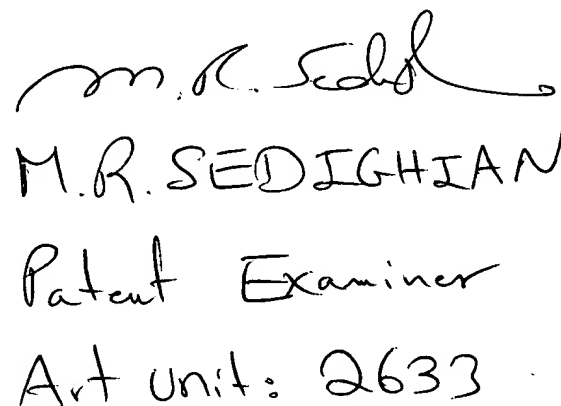 M.R. Sedigh
M.R. SEDIGHIAN
Patent Examiner
Art unit: 2633